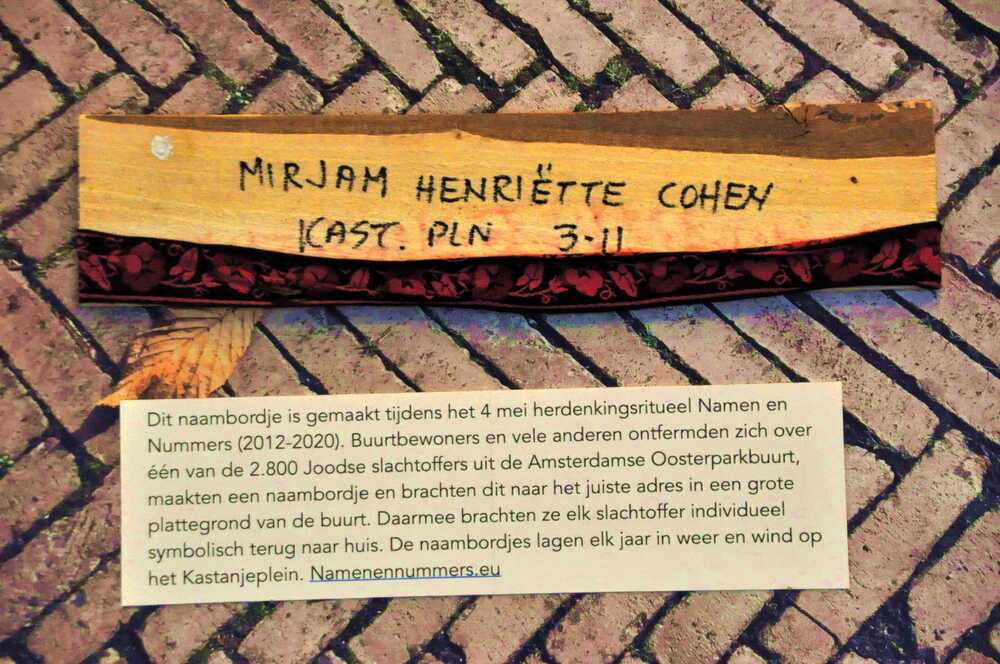 MIRJAM HENRIËTTE COHEN
KAST. PLN 3-II
Dit naambordje is gemaakt tijdens het 4 mei herdenkingsritueel Namen en
Nummers (2012-2020). Buurtbewoners en vele anderen ontfermden zich over
één van de 2.800 Joodse slachtoffers uit de Amsterdamse Oosterparkbuurt,
maakten een naambordje en brachten dit naar het juiste adres in een grote
plattegrond van de buurt. Daarmee brachten ze elk slachtoffer individueel
symbolisch terug naar huis. De naambordjes lagen elk jaar in weer en wind op
het Kastanjeplein. Namenennummers.eu